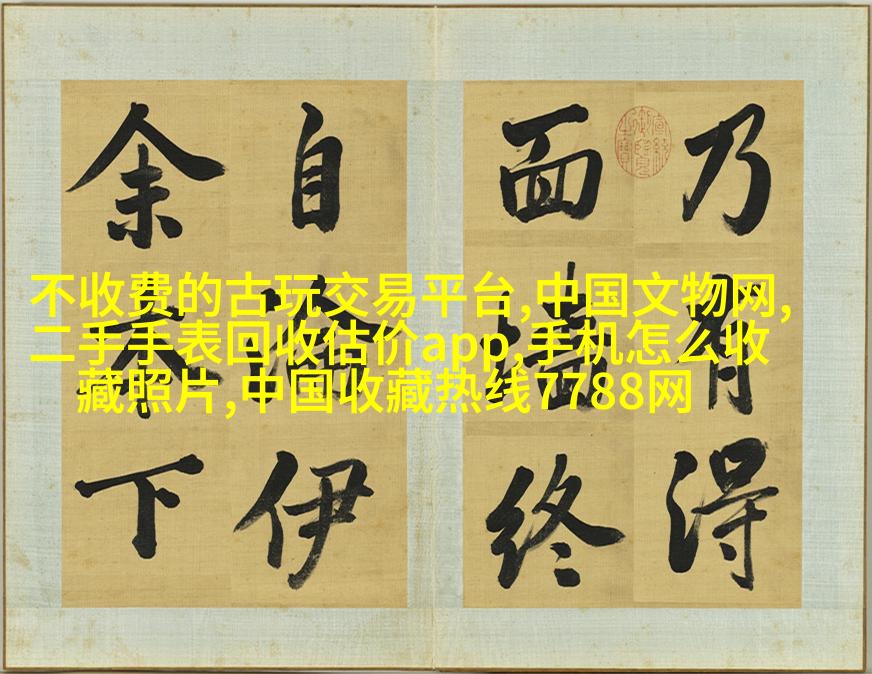 不收费的古玩交易平台,中国文物网,
二手手表回收估价app,手机怎么收
藏照片,中国收藏热线7788网
乃有得
面墻終
自伊
余本下